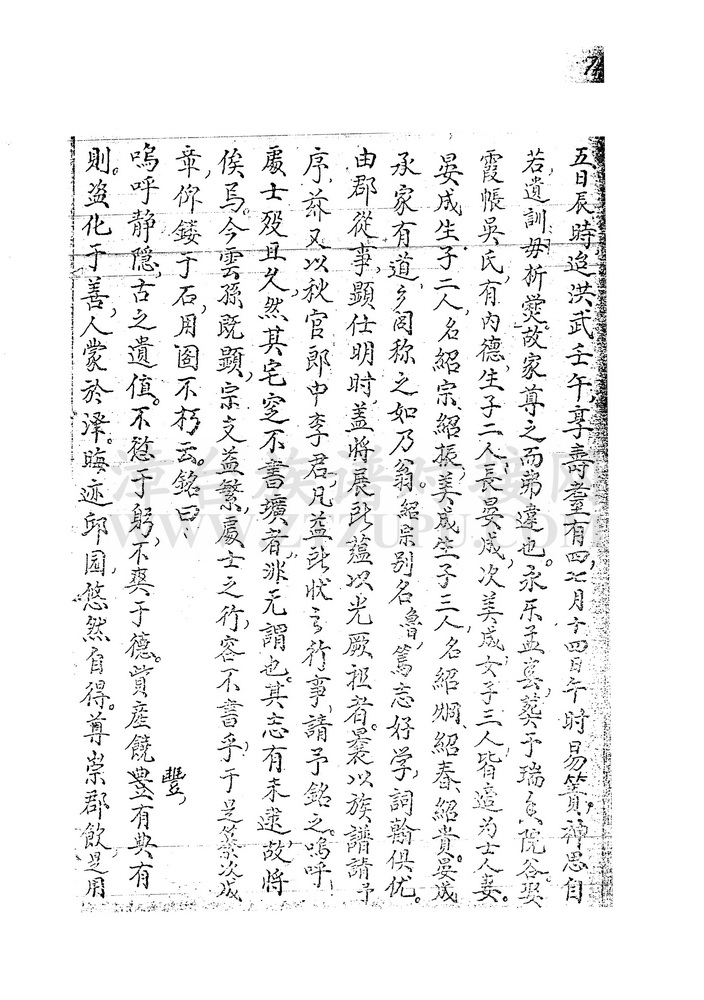 五日辰時迨洪武壬午,享壽耋有四,七月十四日午時易簀,神思自
若,遺訓毋析爨。故家尊之而弗違也。永乐孟冬葬于瑞 院谷。娶
霞帳吳氏,有内德,生子二人,長晏成,次美成,女子三人,皆適为士人妻。
晏成生子二人,名紹宗、紹振,美成生子三人,名紹烱、紹春、紹貴。晏成
承家有道,乡闾称之如乃翁。紹宗别名魯,篤志好学,詞翰俱优。
由郡從事,顯仕明时,盖將展所蘊以光厥祖者。曩以族譜請予
序,茲又以秋官郎中李君,凡益所狀 行事,請予銘之。嗚呼,
處士殁且久,然其宅窆不書壙者,非无謂也。其志有未逮,故將
俟焉。今雲孫既顯,宗支益繁。處士之行,容不書乎,于是纂次成
章,俾鏤于石,用圖不朽云。銘曰、
豐,
嗚呼静隐,古之遺值。不愆于躬,不爽于德。貲産饒豊,有典有
則。盗化于善,人蒙於泽。晦迹邱园,悠然自得。尊崇郡飲,是用
漳台族谱对接网
WWW.ZTZUPU.COM